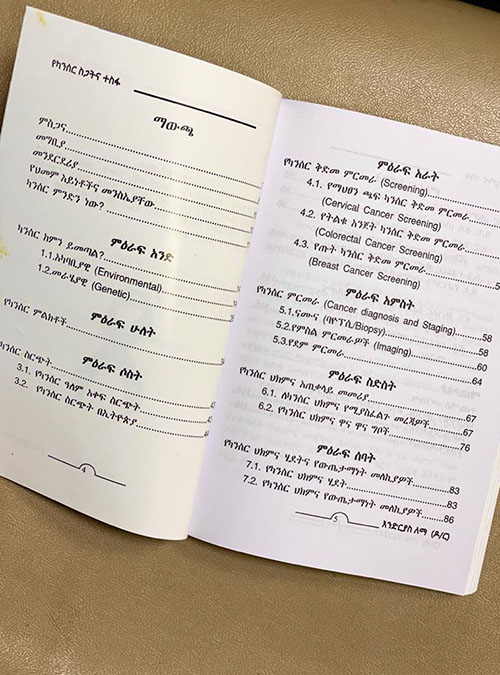 የካንሰር ስጋትና ተስፋ
ማውጫ
ምስጋና
መግቢያ
መንደርደሪያ
የህመም አይነቶችና መንስኤያቸው
ካንሰር ምንድን ነው?
ምዕራፍ አንድ
ካንሰር ከምን ይመጣል?
1.1.አካባቢያዊ (Environmental)
1.2.መራሄያዊ (Genetic)
ምዕራፍ ሁለት
የካንሰር ምልክቶች
ምዕራፍ ሶስት
ካንሰር ስርጭት
3.1. የካንሰር ዓለም አቀፍ ስርጭት
3.2. የካንሰር ስርጭት በኢትዮጵያ
ምዕራፍ አራት
የካንሰር ቅድመ ምርመራ (Screening)
4.1. የማህፀን ጫፍ ካንሰር ቅድመ ምርመራ
(Cervical Cancer Screening)
4.2. የትልቁ አንጀት ካንሰር ቅድመ ምርመራ
(Colorectal Cancer Screening)
4.3. የጡት ካንሰር ቅድመ ምርመራ
(Breast Cancer Screening)
ምዕራፍ አምስት
የካንሰር ምርመራ (Cancer diagnosis and Staging)....58
5.1.ናሙና (ባዮፕሲ/Biopsy)....58
5.2.የምስል ምርመራዎች (Imaging)....60
5.3.የደም ምርመራ....64
ምዕራፍ ስድስት
የካንሰር ህክምና አጠቃላይ መመሪያ....67
6.1. ለካንሰር ህክምና የሚያስፈልጉ መረጃዎች....67
6.2. የካንሰር ህክምና ዋና ዋና ግቦች....76
ምዕራፍ ሰባት
የካንሰር ህክምና ሂደትና የውጤታማነት መለኪያዎች....83
7.1. የካንሰር ህክምና ሂደት....83
7.2. የካንሰር ህክምና የውጤታማነት መለኪያዎች....86
5
እንድርያስ ለማ (ዶ/ር)